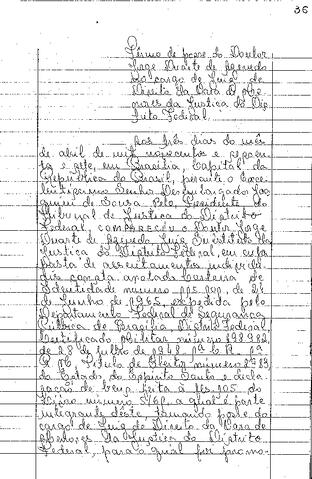 36
Termo de posse do Doutor
Jorge Duarte de Azevedo
no cargo de Juiz de
Direito da Vara de Me-
nores da Justiça do Dis-
trito Federal.
Aos três dias do mês
de abril de mil novecentos e
e sete, em Brasília, Capital da
República do Brasil, perante o Exce-
lentíssimo Senhor Desembargador Joa-
quim de Sousa Neto, Presidente do
Tribunal de Justiça do Distrito
Federal, compareceu o Doutor Jorge
Duarte de Azevedo, Juiz Substituto da
Justiça do Distrito Federal, em cuja
pasta de assentamentos indivi-
duais consta anotada Carteira de
Identidade número de 21
de Junho de 1965, expedida pelo
Departamento Federal de Segurança
Pública de Brasília, Distrito Federal,
Certificado Militar número 198.982,
de 28 de julho de 1948,
Título de Eleitor número 8989,
do Estado do Espírito Santo e decla-
ração de bens feita à fls. 105, do
Livro número a qual é parte
integrante deste, tomando posse do
cargo de Juiz de Direito da Vara de
Menores da Justiça do Distrito
Federal, para o qual foi promo-